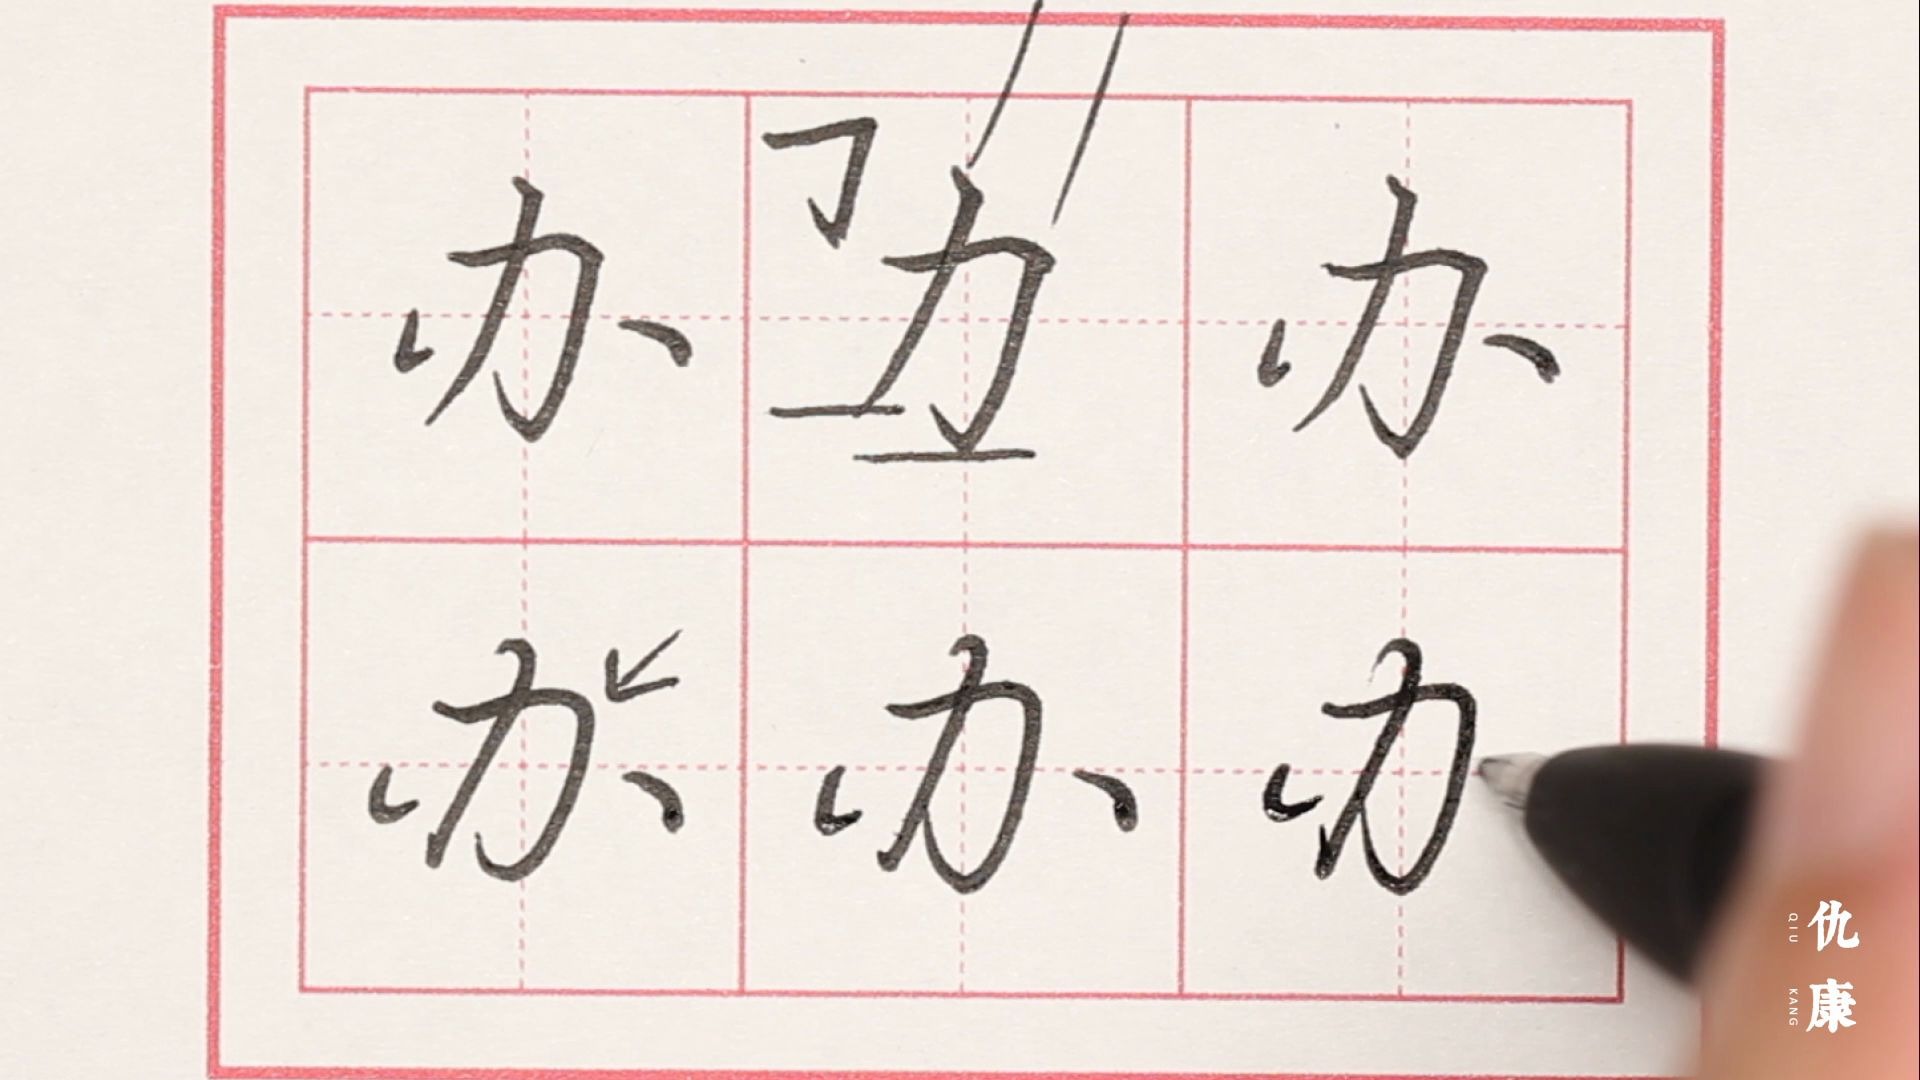 办 力 办
办 办
仇康
QIU KANG